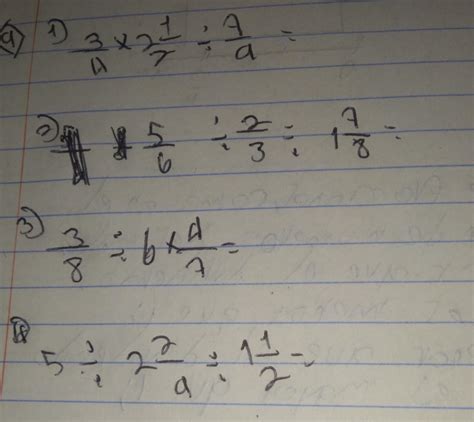 1) 3/4 × 2 1/2 ÷ 7/9 =
2) 5/6 ÷ 2/3 ÷ 1 7/8 =
3) 3/8 ÷ 6 × 4/7 =
5 ÷ 2 2/9 ÷ 1 1/2 =